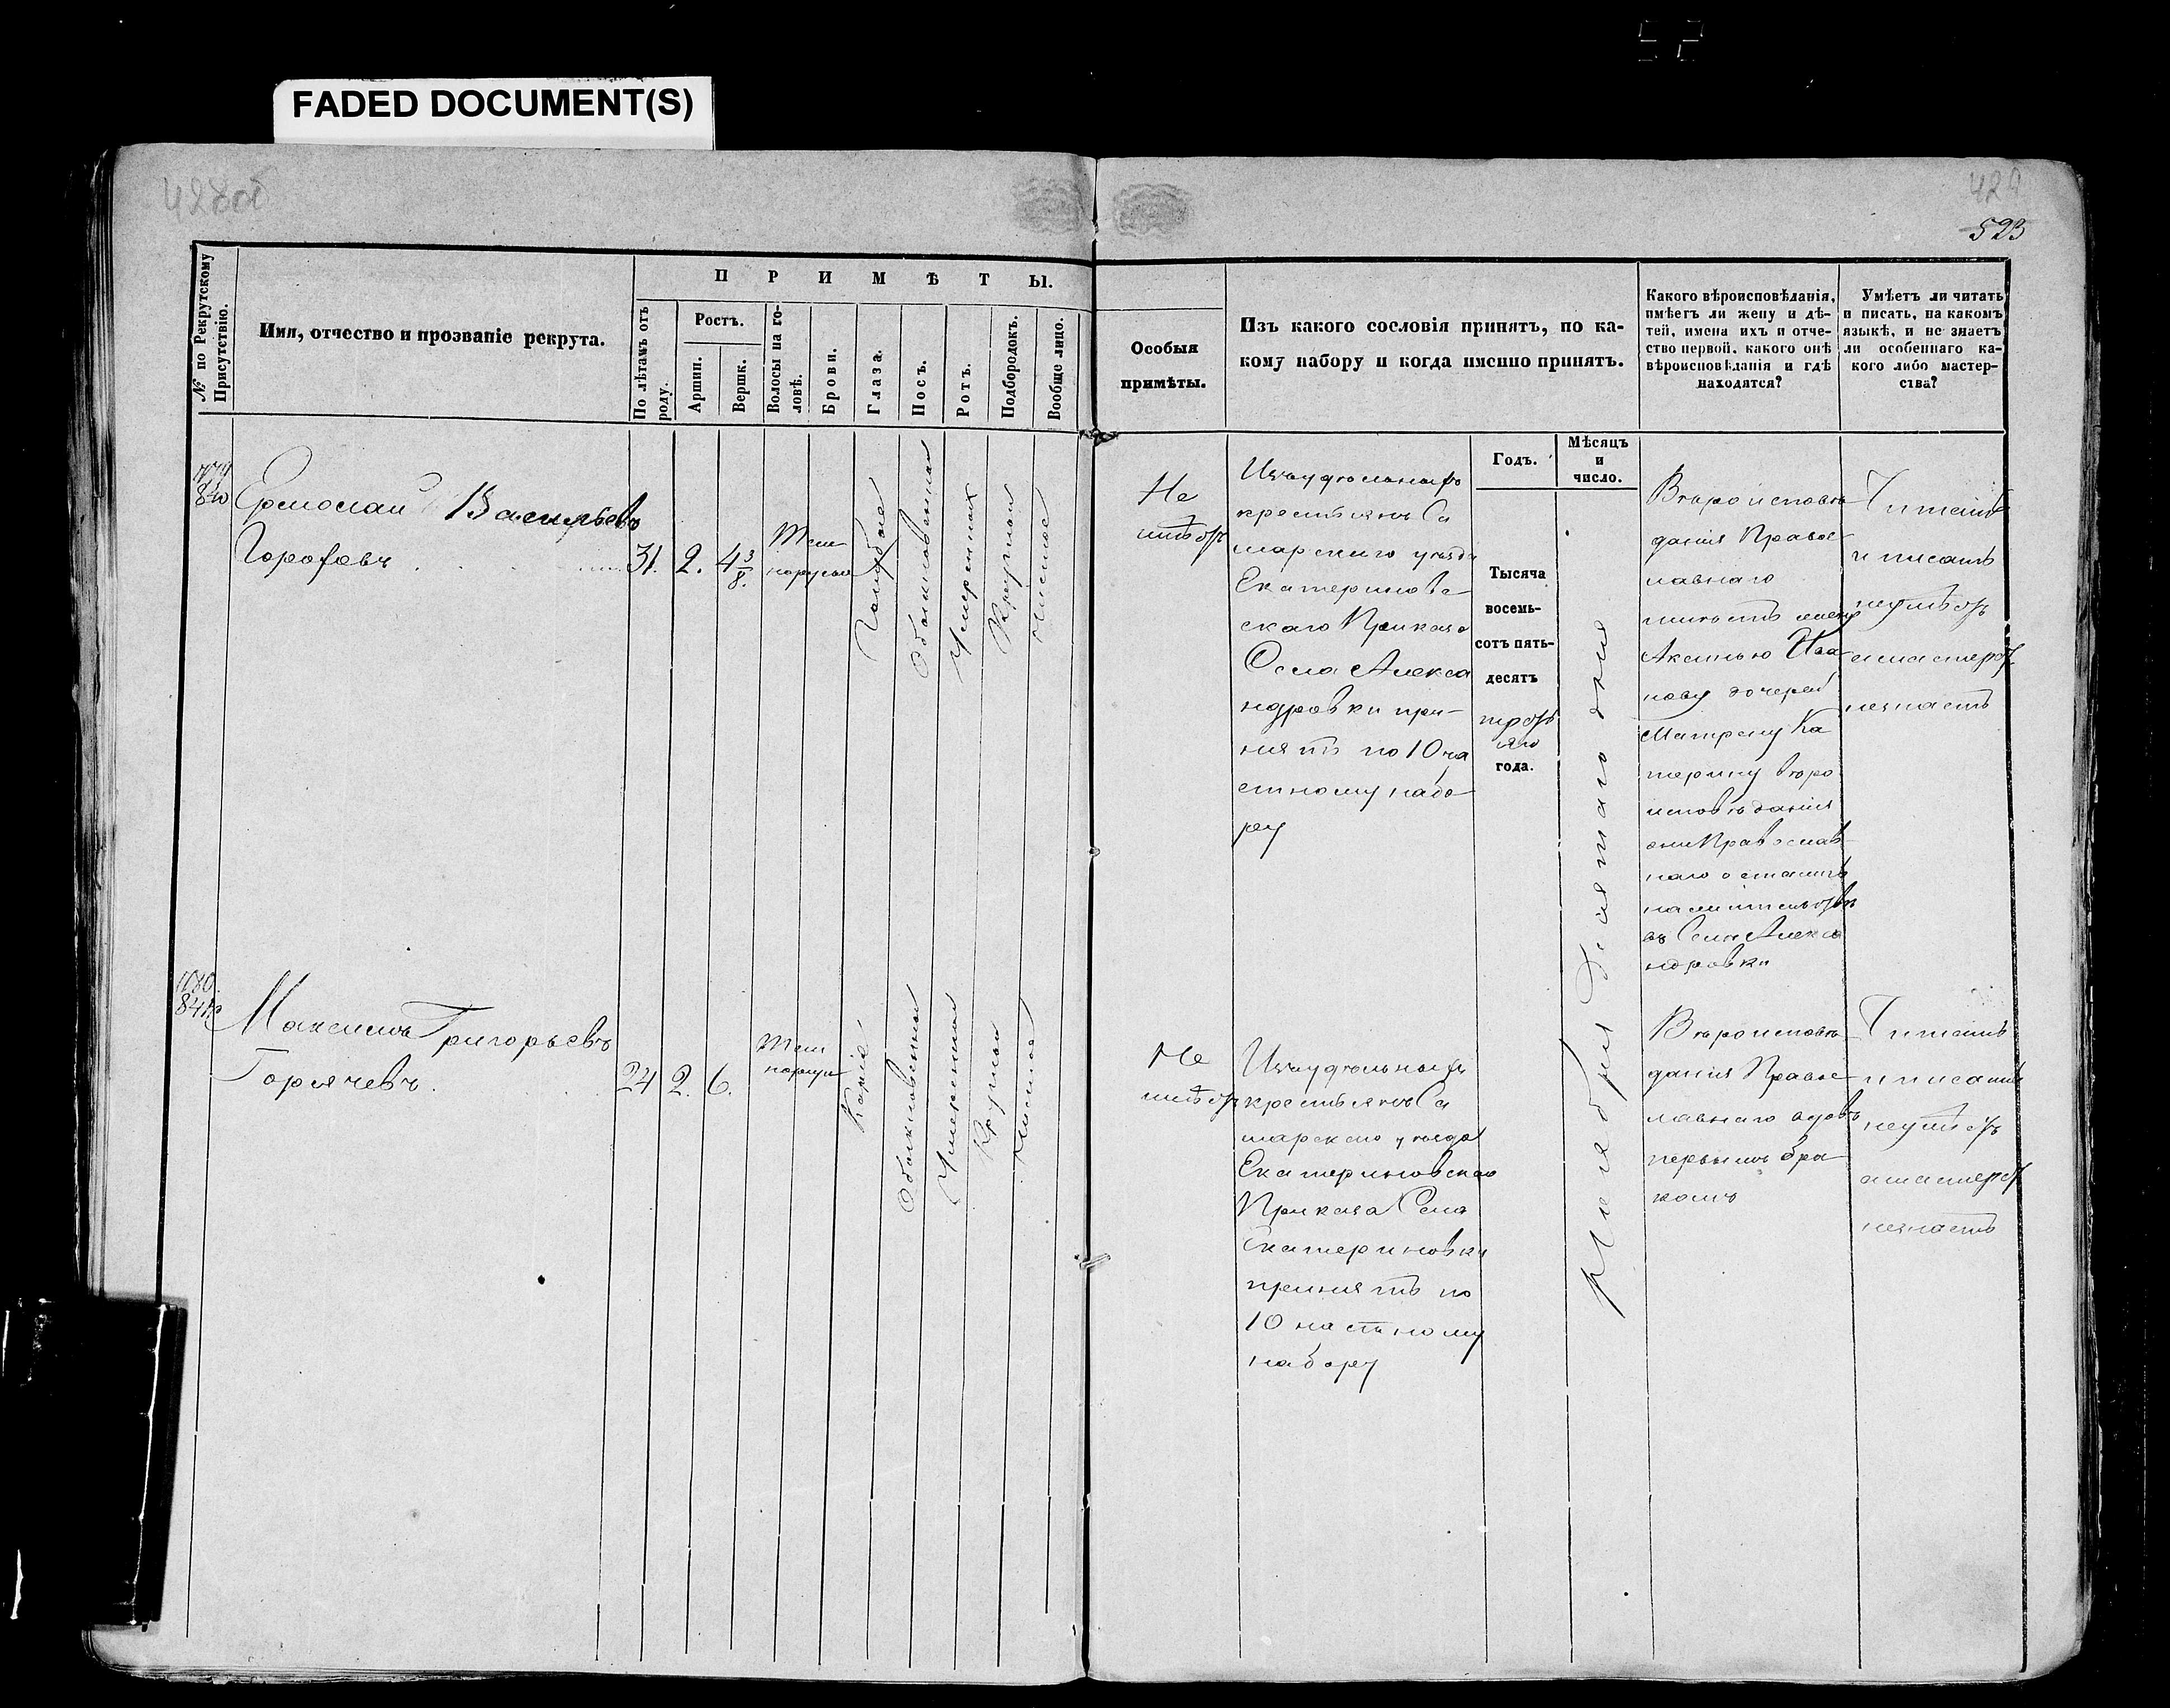 FADED DOCUMENT(S)
428об
429
523
№ по Рекрутскому Присутствію.
Имя, отчество и прозваніе рекрута.
ПРИМѢТЫ.
По лѣтамъ отъ роду.
Ростъ.
Аршин.
Вершк.
Волосы на головѣ.
Брови.
Глаза.
Носъ.
Ротъ.
Подбородокъ.
Вообще лицо.
Особыя
примѣты.
Изъ какого сословія принятъ, по ка-
кому набору и когда именно принятъ.
Годъ.
Мѣсяцъ
и
число.
Какого вѣроисповѣданія,
имѣетъ ли жену и дѣ-
тей, имена ихъ и отче-
ство первой, какого онѣ
вѣроисповѣданія и гдѣ
находятся?
Умѣетъ ли читать
и писать, на какомъ
языкѣ, и не знаетъ
ли особеннаго ка-
кого либо мастер-
ства?
840
Ермолай Васильевъ
31. 2. 4 3/8.
Темно
русые
Голубые
Обыкновенный
Умеренный
Круглый
Чистое
Не
имѣетъ
Изъ удѣльныхъ
крестьянъ Са
марскаго уѣзда
Екатериновс
скаго Приказа
Села Алекса
ндровки при-
нятъ по 10 ча
стному набо
ру
Тысяча
восемь-
сотъ пять-
десятъ
третьяго
года.
Ноября девятаго дня
Вѣроисповѣ
данія Правос
лавнаго
имѣетъ жену
Аксинью Ива
нову дочерей
Матрену Ка
терину вѣро
исповѣданія
они Православ
наго
въ Селѣ Алекса
ндровки
Читать
и писать
неумѣетъ
а мастерст
незнаетъ
1080
841
Максимъ Григорьевъ
Горячевъ.
24 2. 6.
Темно
Каріе
Обыкновенный
Умеренный
Круглый
Чистое
Не
имѣетъ
Изъ удѣльныхъ
крестьянъ Са
марскаго уѣзда
Екатериновскаго
Приказа Села
Екатериновки
принятъ по
10 частному
набору
Вѣроисповѣ
данія Правос
лавнаго вдовъ
первымъ бра
комъ
Читать
и писать
неумѣетъ
а мастерст
незнаетъ